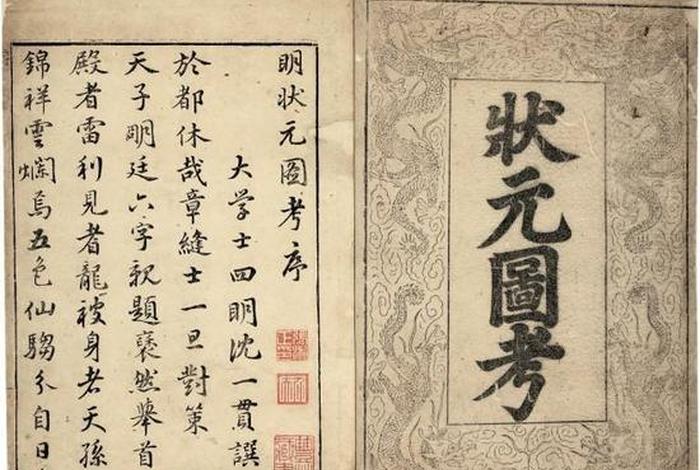 狀元圖考
明狀元圖考序
大学士四明沈一貫譔
於都休哉章縫士一旦對策
天子明廷六字親題褒然舉首
殿者雷利見者龍被身者天孫
錦祥雲爛焉五色仙騶分自日